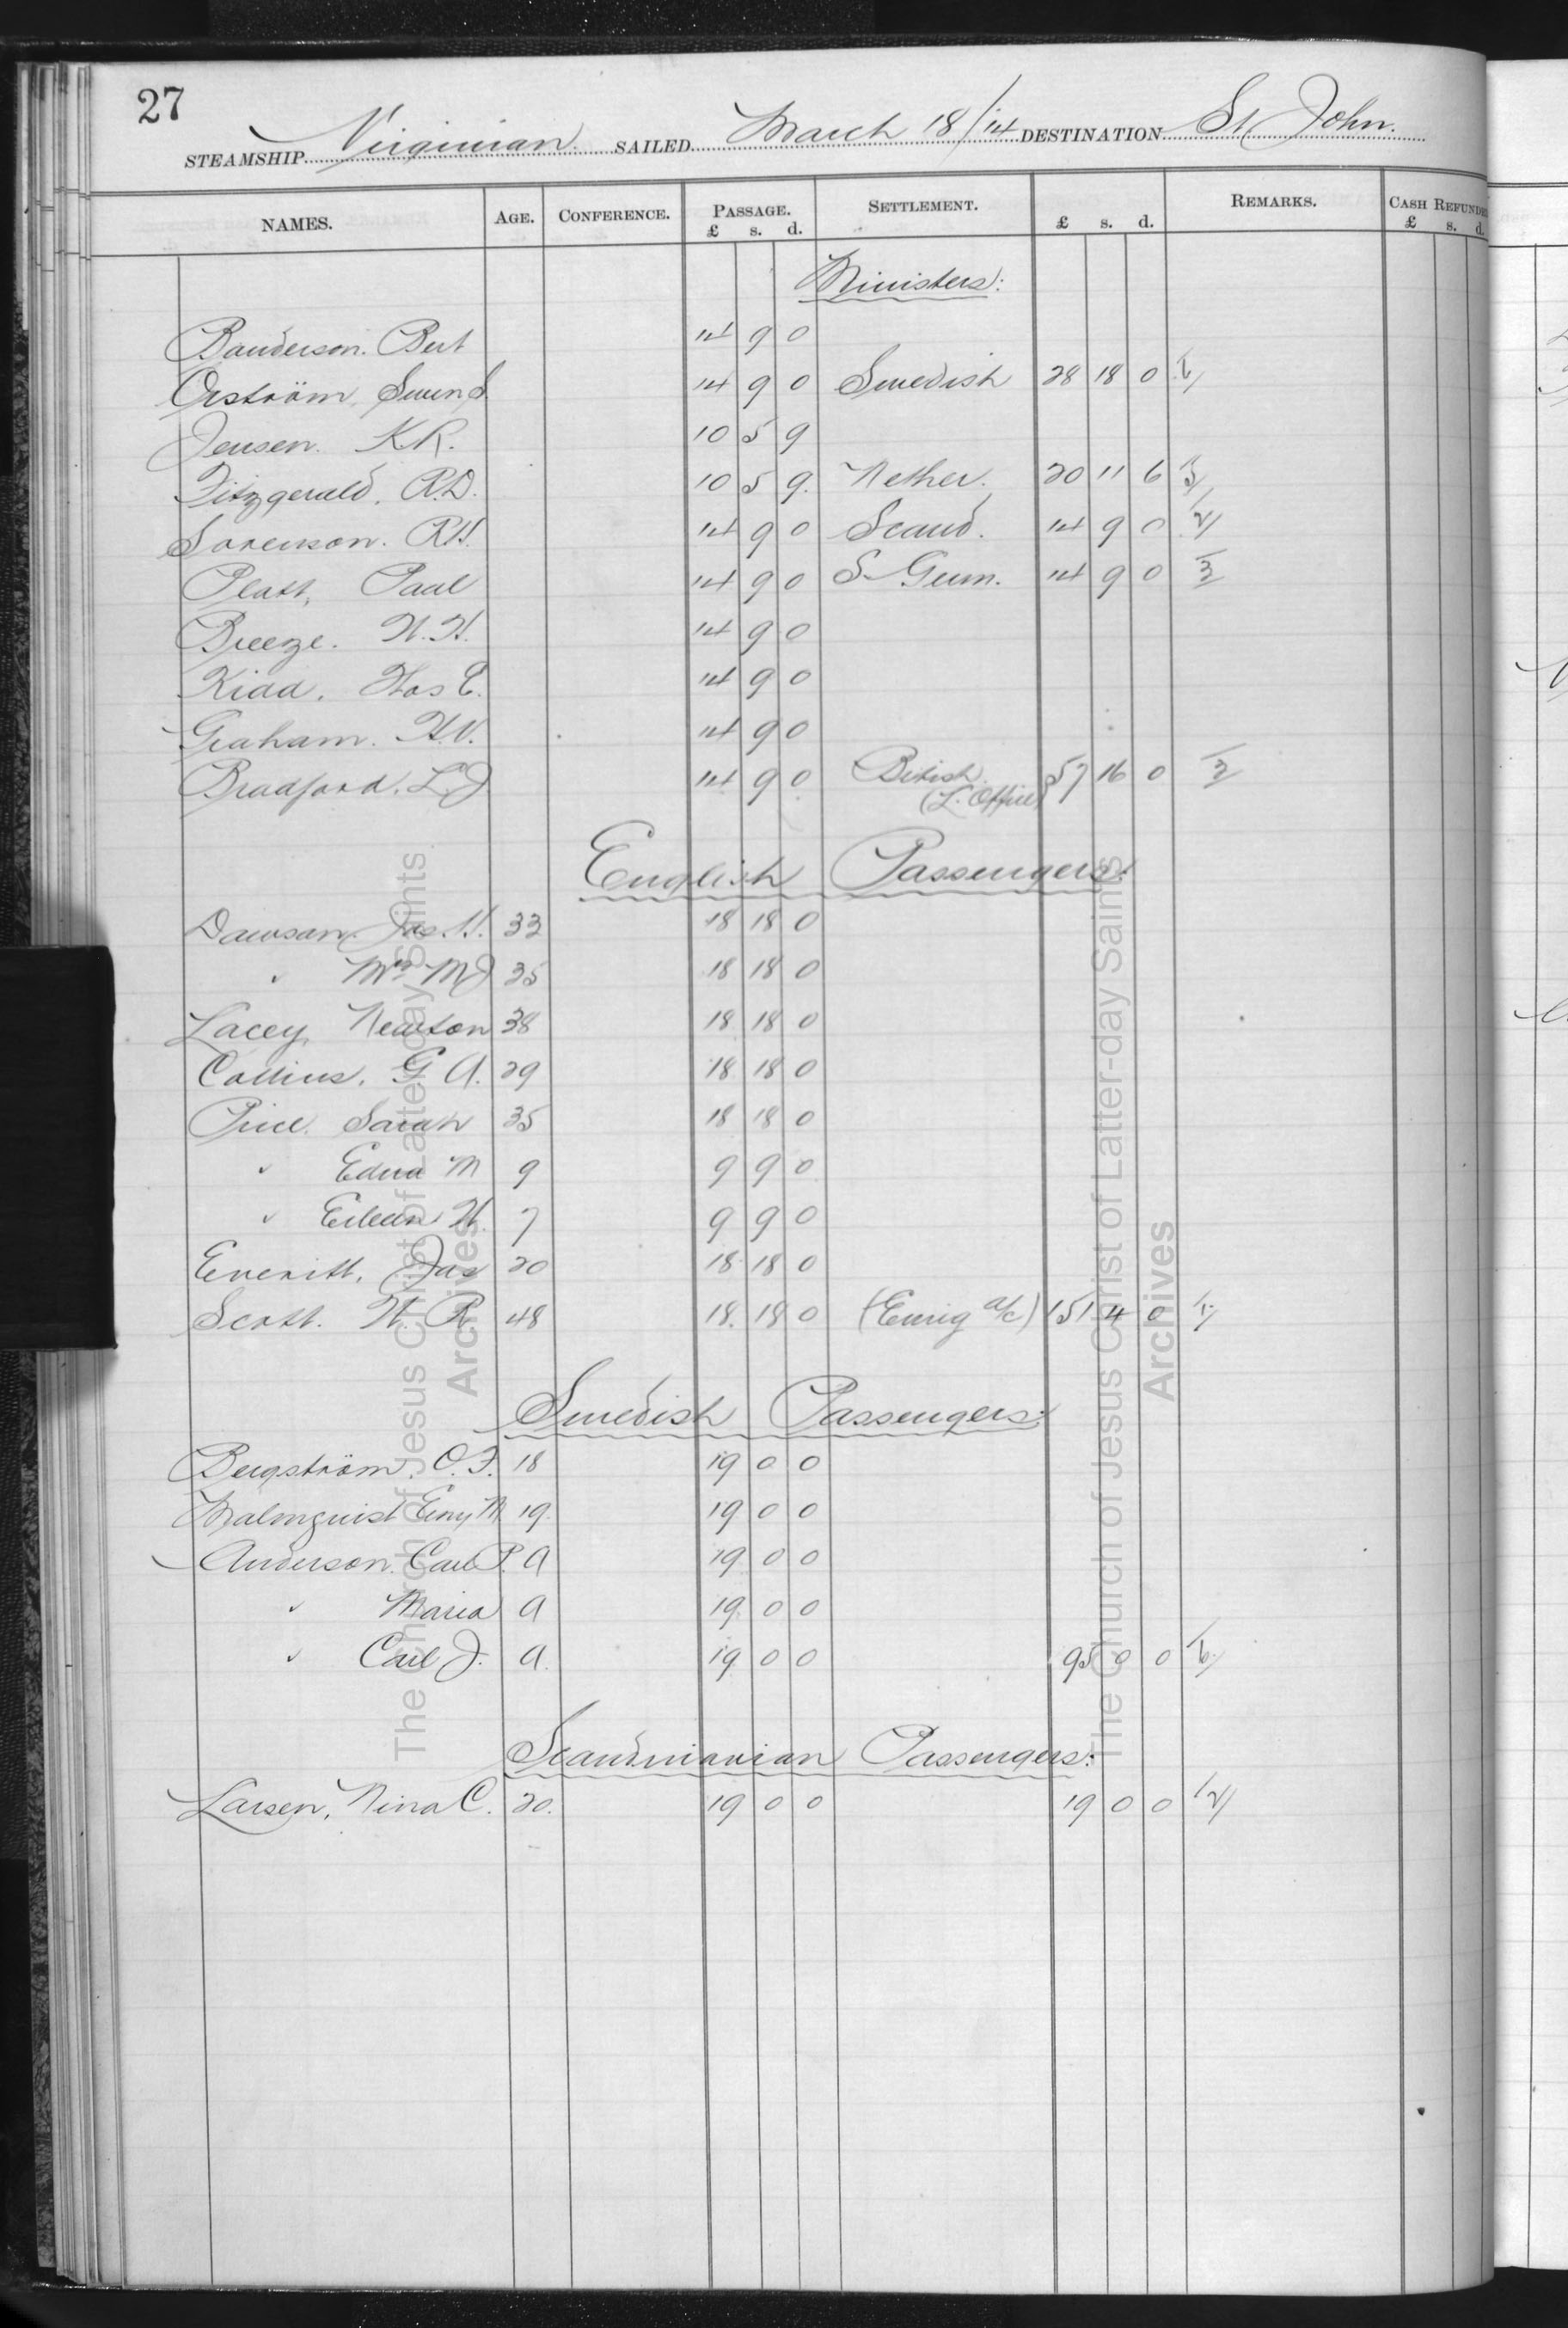 27
STEAMSHIP Virginian. SAILED March 18/14 DESTINATION St John.
NAMES. AGE. CONFERENCE. PASSAGE. SETTLEMENT. REMARKS. CASH REFUNDE
£ s. d. £ s. d. £ s. d.
Ministers:
Banderson. Bert 14 9 0
Orström, Swen S. 14 9 0 Swedish 28 18 0
Jensen. K.R. 10 5 9
Fitzgerald. R.D. 10 5 9. Nether. 20 11 6
Sorenson. R.H. 14 9 0 Scand. 14 9 0
Platt, Paul 14 9 0 S Germ. 14 9 0
Breeze. W.H. 14 9 0
Kidd. Thos E. 14 9 0
Graham. H.V. 14 9 0
Bradford. L.J 14 9 0 British. 57 16 0
(L. Office)
English Passengers:
Dawson Jas. H. 33 18 18 0
" Mrs MJ 35 18 18 0
Lacey, Newton 38 18 18 0
Collins. G A. 29 18 18 0
Price. Sarah 35 18 18 0
" Edna M 9 9 9 0
" Eileen H. 7 9 9 0
Everitt. Jas 20 18 18 0
Scott. W. R. 48 18. 18 0 (Emig a/c) 151 4 0
Swedish Passengers:
Bergström. O.F. 18 19 0 0
Malmquist Emy M. 19. 19 0 0
Anderson. Carl P. A 19 0 0
" Maria A 19 0 0
" Carl J. A. 19 0 0 95 0 0
Scandinavian Passengers:
Larsen, Nina C. 20. 19 0 0 19 0 0
The Church of Jesus Christ of Latter-day Saints
Archives
The Church of Jesus Christ of Latter-day Saints
Archives